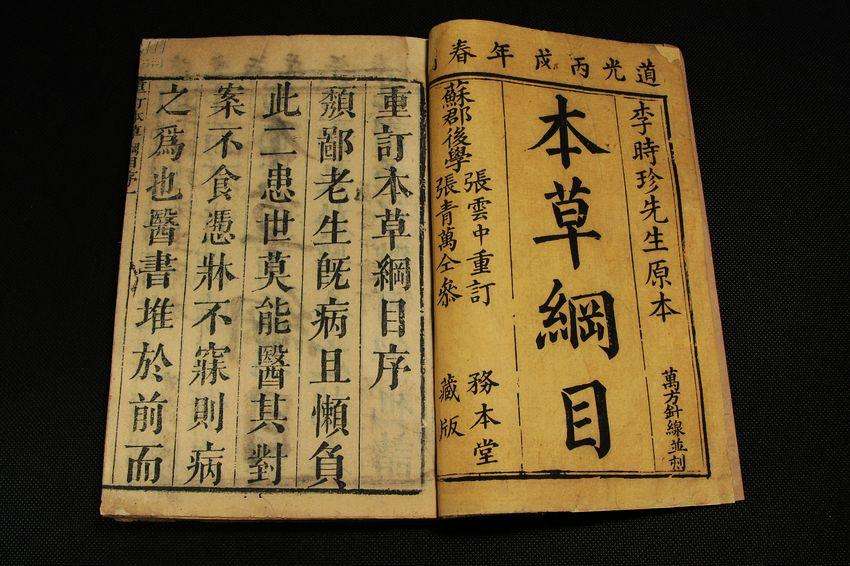 道光丙戌年春
李時珍先生原本
萬方針線並刻
本草綱目
張雲中重訂
蘇郡後學
張青萬仝參
務本堂
藏版
重訂本草綱目序
頹鄙老生旣病且懶負
此二患世莫能醫其對
案不食憑牀不寐則病
之爲也醫書堆於前而